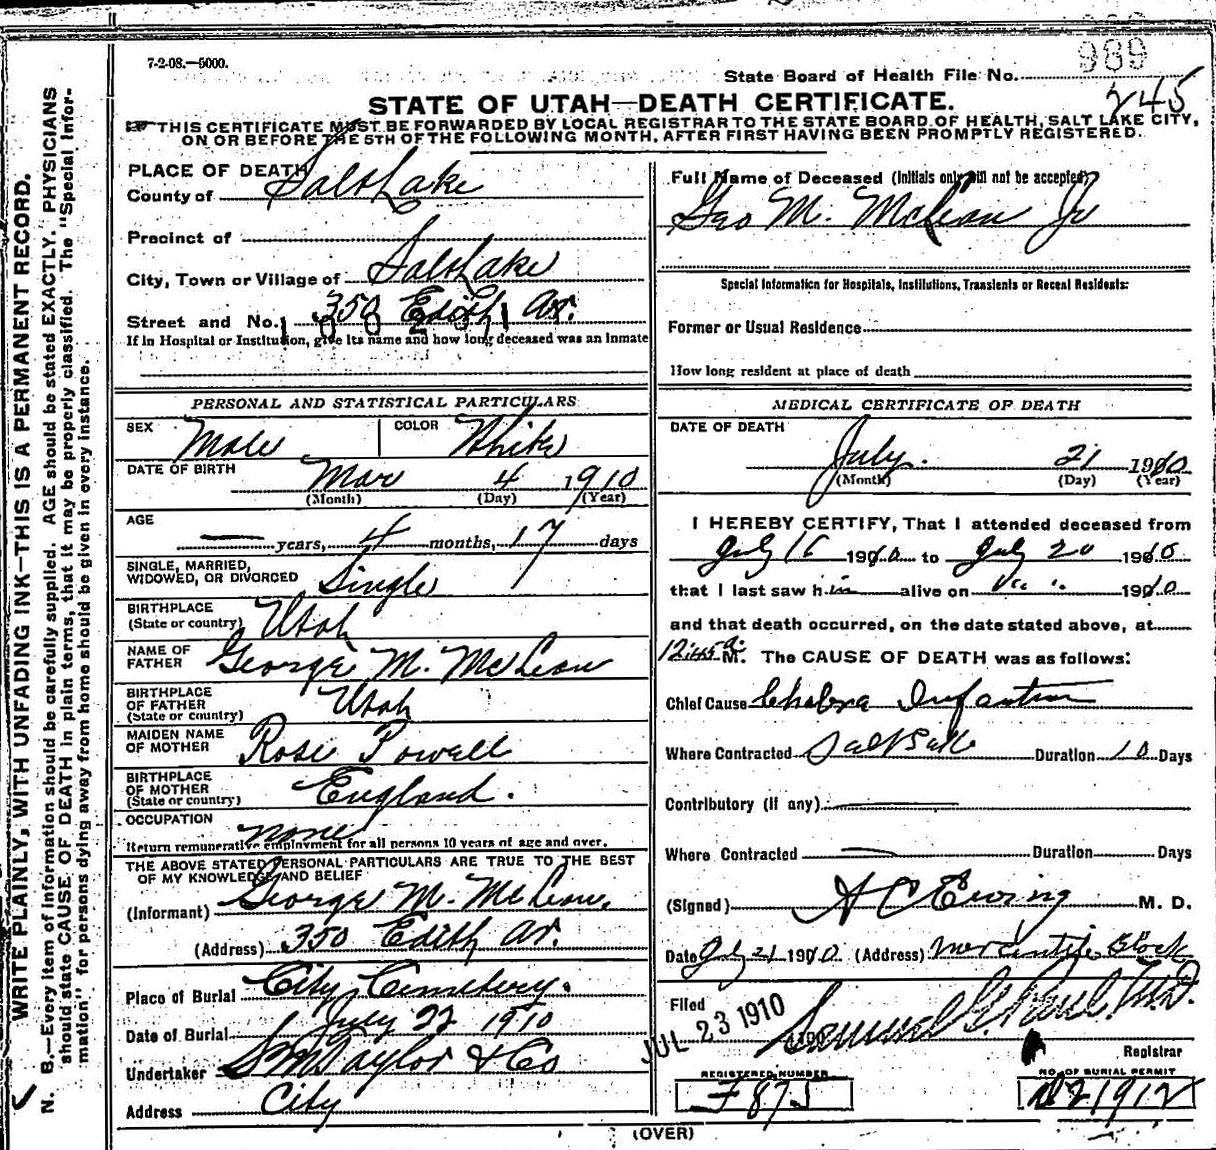 7-2-08.—5000.
State Board of Health File No. 989
245
STATE OF UTAH—DEATH CERTIFICATE.
THIS CERTIFICATE MUST BE FORWARDED BY LOCAL REGISTRAR TO THE STATE BOARD OF HEALTH, SALT LAKE CITY,
ON OR BEFORE THE 5TH OF THE FOLLOWING MONTH, AFTER FIRST HAVING BEEN PROMPTLY REGISTERED.
WRITE PLAINLY, WITH UNFADING INK—THIS IS A PERMANENT RECORD.
N. B.—Every item of information should be carefully supplied. AGE should be stated EXACTLY. PHYSICIANS
should state CAUSE OF DEATH in plain terms, that it may be properly classified. The "Special Infor-
mation" for persons dying away from home should be given in every instance.
PLACE OF DEATH
County of Salt Lake
Precinct of
City, Town or Village of Salt Lake
Street and No. 350 Edith Av.
If in Hospital or Institution, give its name and how long deceased was an Inmate
PERSONAL AND STATISTICAL PARTICULARS
SEX Male COLOR White
DATE OF BIRTH Mar 4 1910
(Month) (Day) (Year)
AGE
— years, 4 months, 17 days
SINGLE, MARRIED,
WIDOWED, OR DIVORCED Single
BIRTHPLACE
(State or country) Utah
NAME OF
FATHER George M. McLean
BIRTHPLACE
OF FATHER
(State or country) Utah
MAIDEN NAME
OF MOTHER Rose Powell
BIRTHPLACE
OF MOTHER
(State or country) England.
OCCUPATION none
Return remunerative employment for all persons 10 years of age and over.
THE ABOVE STATED PERSONAL PARTICULARS ARE TRUE TO THE BEST
OF MY KNOWLEDGE AND BELIEF
(Informant) George M. McLean.
(Address) 350 Edith Av.
Place of Burial City Cemetery.
Date of Burial July 22 1910
Undertaker S M Taylor & Co
Address City
Full Name of Deceased (Initials only will not be accepted)
Geo M. McLean Jr
Special Information for Hospitals, Institutions, Transients or Recent Residents:
Former or Usual Residence
How long resident at place of death
MEDICAL CERTIFICATE OF DEATH
DATE OF DEATH
July. 21 1910
(Month) (Day) (Year)
I HEREBY CERTIFY, That I attended deceased from
July 16 1910 to July 20 1910
that I last saw him alive on 1910
and that death occurred, on the date stated above, at
12:45 a M. The CAUSE OF DEATH was as follows:
Chief Cause Cholera Infantum
Where Contracted Salt Lake Duration 10 Days
Contributory (if any) —
Where Contracted — Duration Days
(Signed) H C Ewing M. D.
Date July 21 1910. (Address) Mercantile Block
Filed JUL 23 1910 Samuel G. Paul M.D.
Registrar
REGISTERED NUMBER
F 871
NO. OF BURIAL PERMIT
D21912
(OVER)